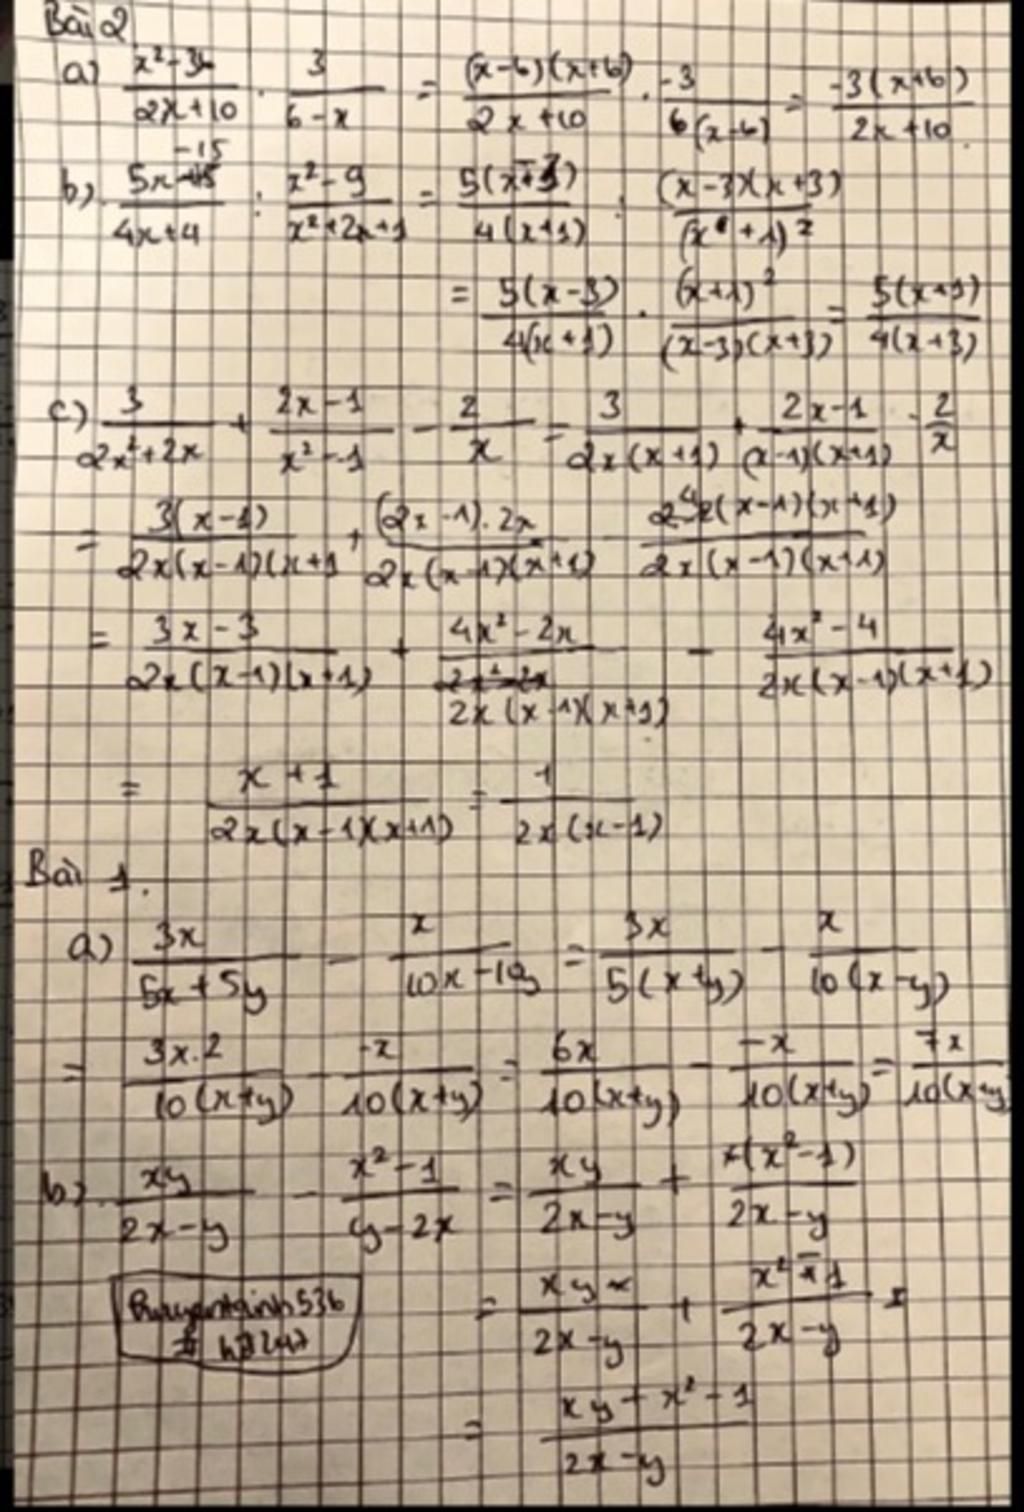 Bài 2
a) (x²-36)/(2x+10) . 3/(6-x) = (x-6)(x+6)/(2x+10) . -3/(6(x-6)) = -3(x+6)/(2x+10)
b) (5x-15)/(4x+4) : (x²-9)/(x²+2x+1) = 5(x-3)/(4(x+1)) : (x-3)(x+3)/(x+1)²
= 5(x-3)/(4(x+1)) . (x+1)²/((x-3)(x+3)) = 5(x+1)/(4(x+3))
c) 3/(2x²+2x) + (2x-1)/(x²-1) - 2/x = 3/(2x(x+1)) + (2x-1)/((x-1)(x+1)) - 2/x
= 3(x-1)/(2x(x-1)(x+1) + (2x-1).2x/(2x(x-1)(x+1)) - (x-1)(x+1)/(2x(x-1)(x+1))
= (3x-3)/(2x(x-1)(x+1)) + (4x²-2x)/(2x(x-1)(x+1)) - (4x²-4)/(2x(x-1)(x+1))
= (x+1)/(2x(x-1)(x+1)) = 1/(2x(x-1))
Bài 1.
a) 3x/(5x+5y) - x/(10x-10y) = 3x/(5(x+y)) - x/(10(x-y))
= 3x.2/(10(x+y)) - -x/(10(x+y)) = 6x/(10(x+y)) - -x/(10(x+y)) = 7x/(10(x+y
b) xy/(2x-y) - (x²-1)/(y-2x) = xy/(2x-y) + (x²-1)/(2x-y)
= xy/(2x-y) + (x²-1)/(2x-y)
= (xy+x²-1)/(2x-y)